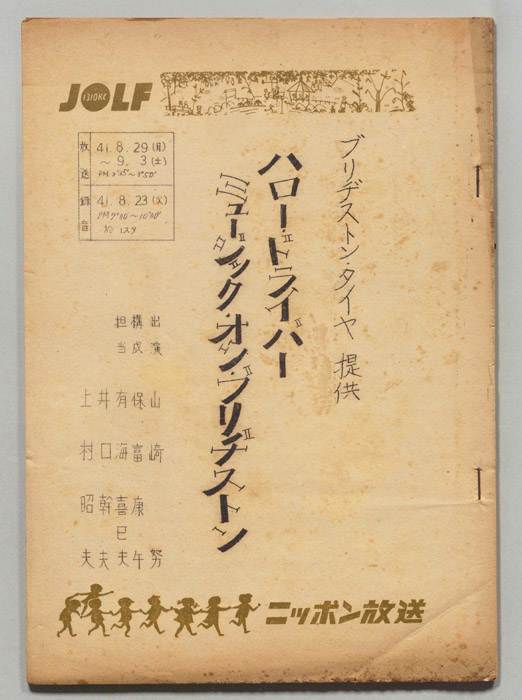 JOLF
1310KC
ブリヂストン・タイヤ 提供
ハロー・ドライバー
ミュージック・オン・ブリヂストン
放送 41. 8. 29 (月)
〜 9. 3 (土)
録音 41. 8. 23 (火)
PM 9°00'〜10°00'
於 1スタ
出演 山崎 努
構成 保富康午
担当 有海喜巳夫
井口幹夫
上村昭夫
ニッポン放送